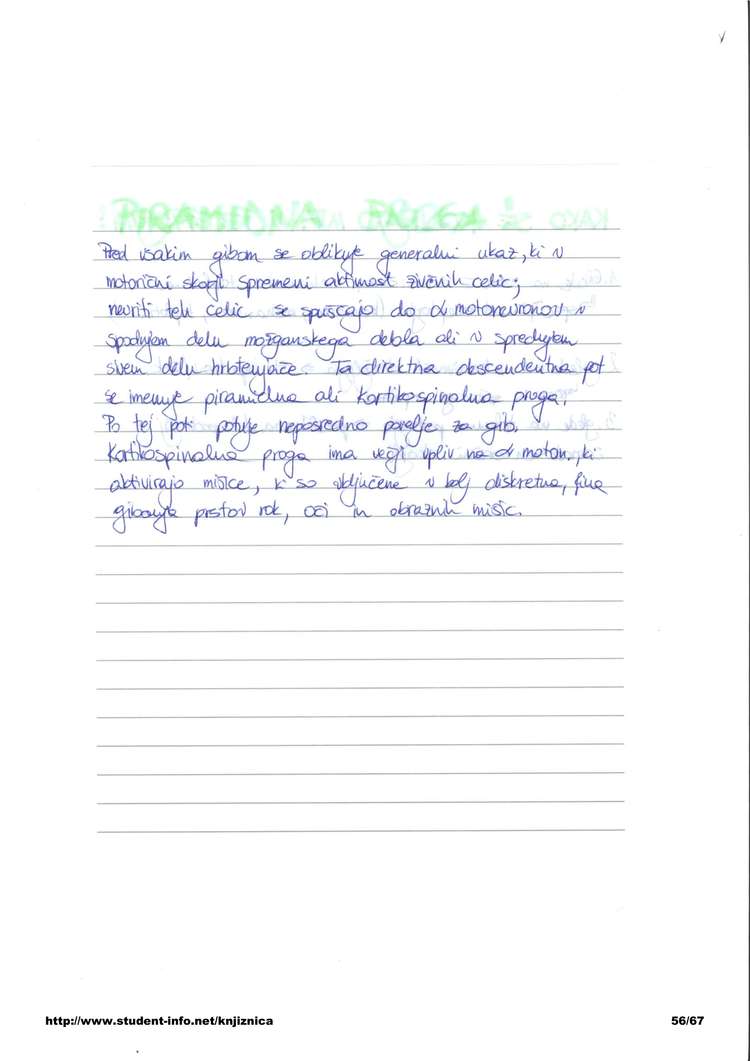 PIRAMIDNA PROGA
Pred vsakim gibom se oblikuje generalni ukaz, ki v
motorični skorji spremeni aktivnost živčnih celic;
nevriti teh celic se spuščajo do α motonevronov v
spodnjem delu možganskega debla ali v sprednjem
sivem delu hrbtenjače. Ta direktna descendentna pot
se imenuje piramidna ali kortikospinalna proga.
Po tej poti potuje neposredno povelje za gib.
Kortikospinalna proga ima večji vpliv na α moton., ki
aktivirajo mišice, ki so vključene v bolj diskretna, fina
gibanja prstov rok, oči in obraznih mišic.
http://www.student-info.net/knjiznica
56/67